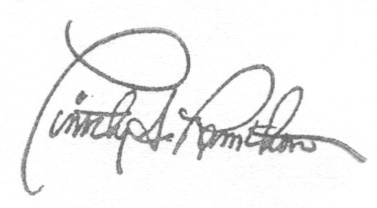 Timothy S. Hamilton